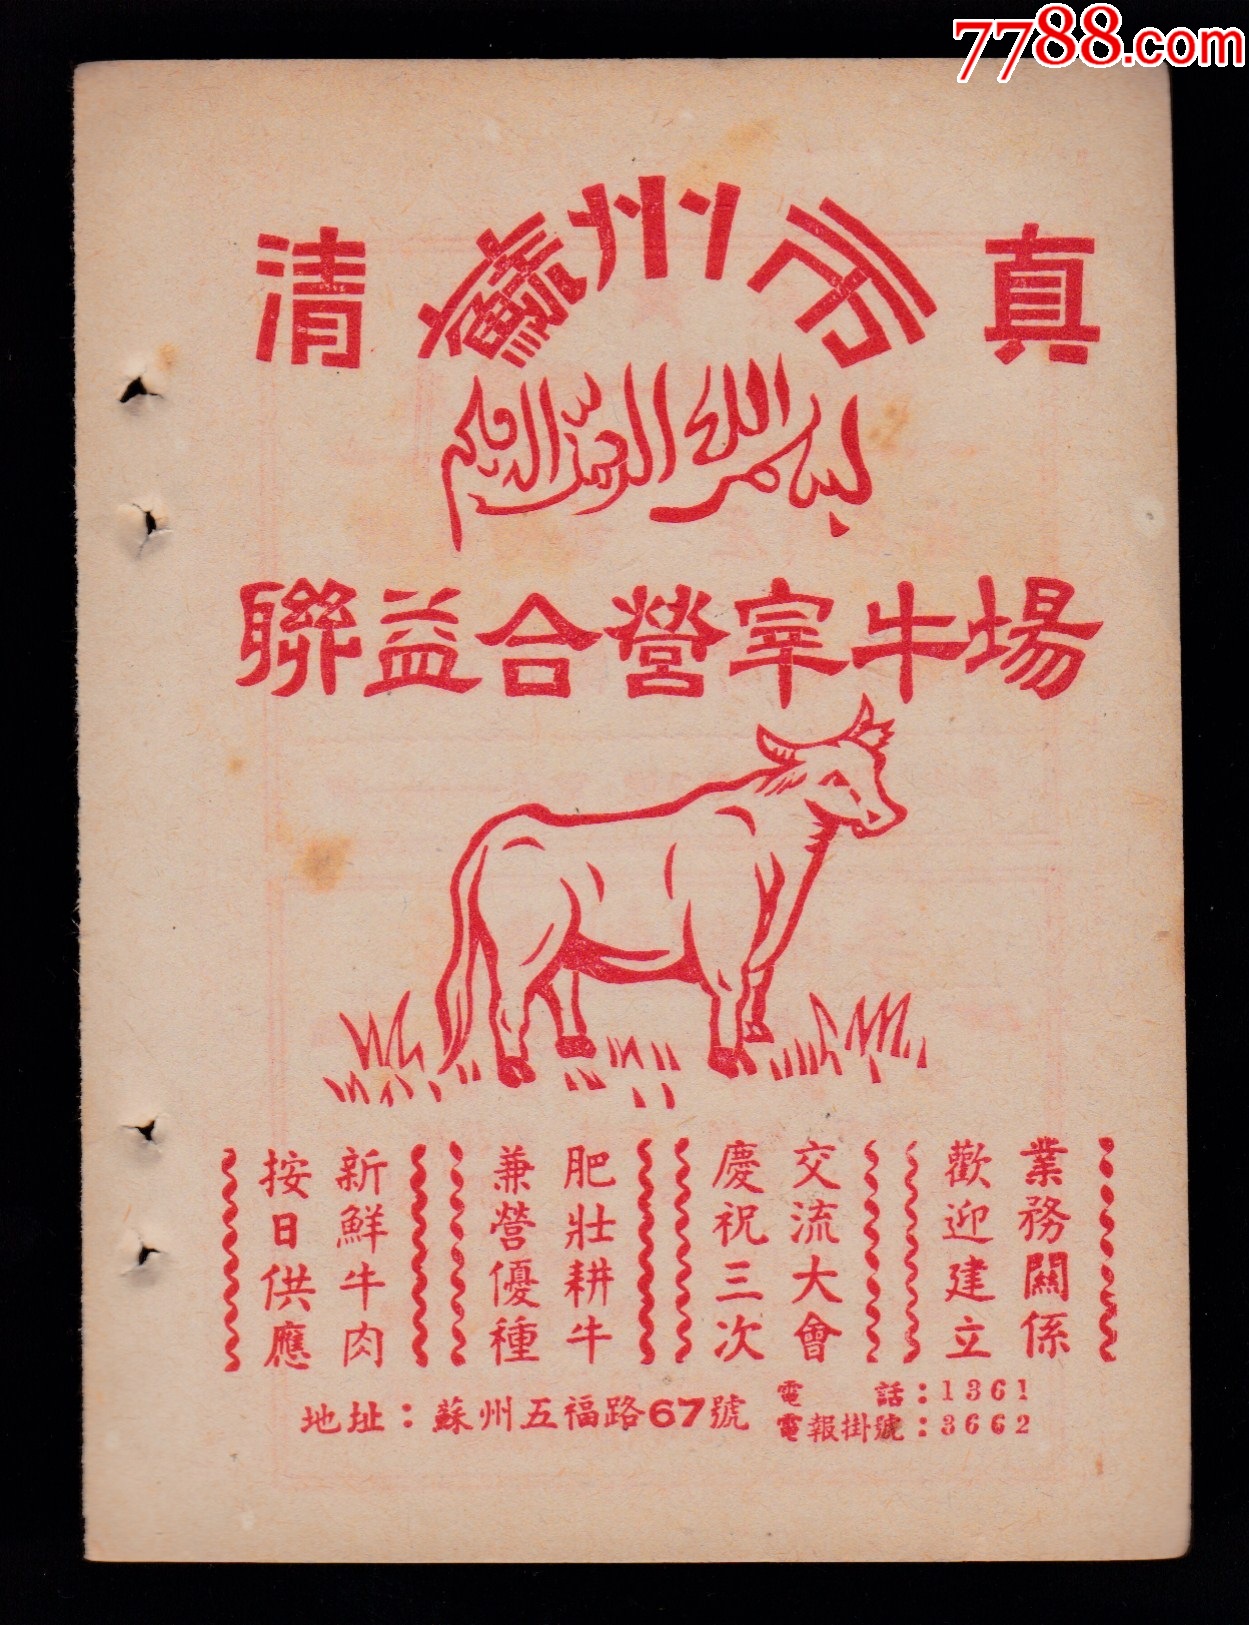 7788.com
清 蘇州市 真
بسم الله الرحمن الرحيم
聯益合營宰牛場
業務關係
歡迎建立
交流大會
慶祝三次
肥壯耕牛
兼營優種
新鮮牛肉
按日供應
地址：蘇州五福路67號
電話：1361
電報掛號：3662